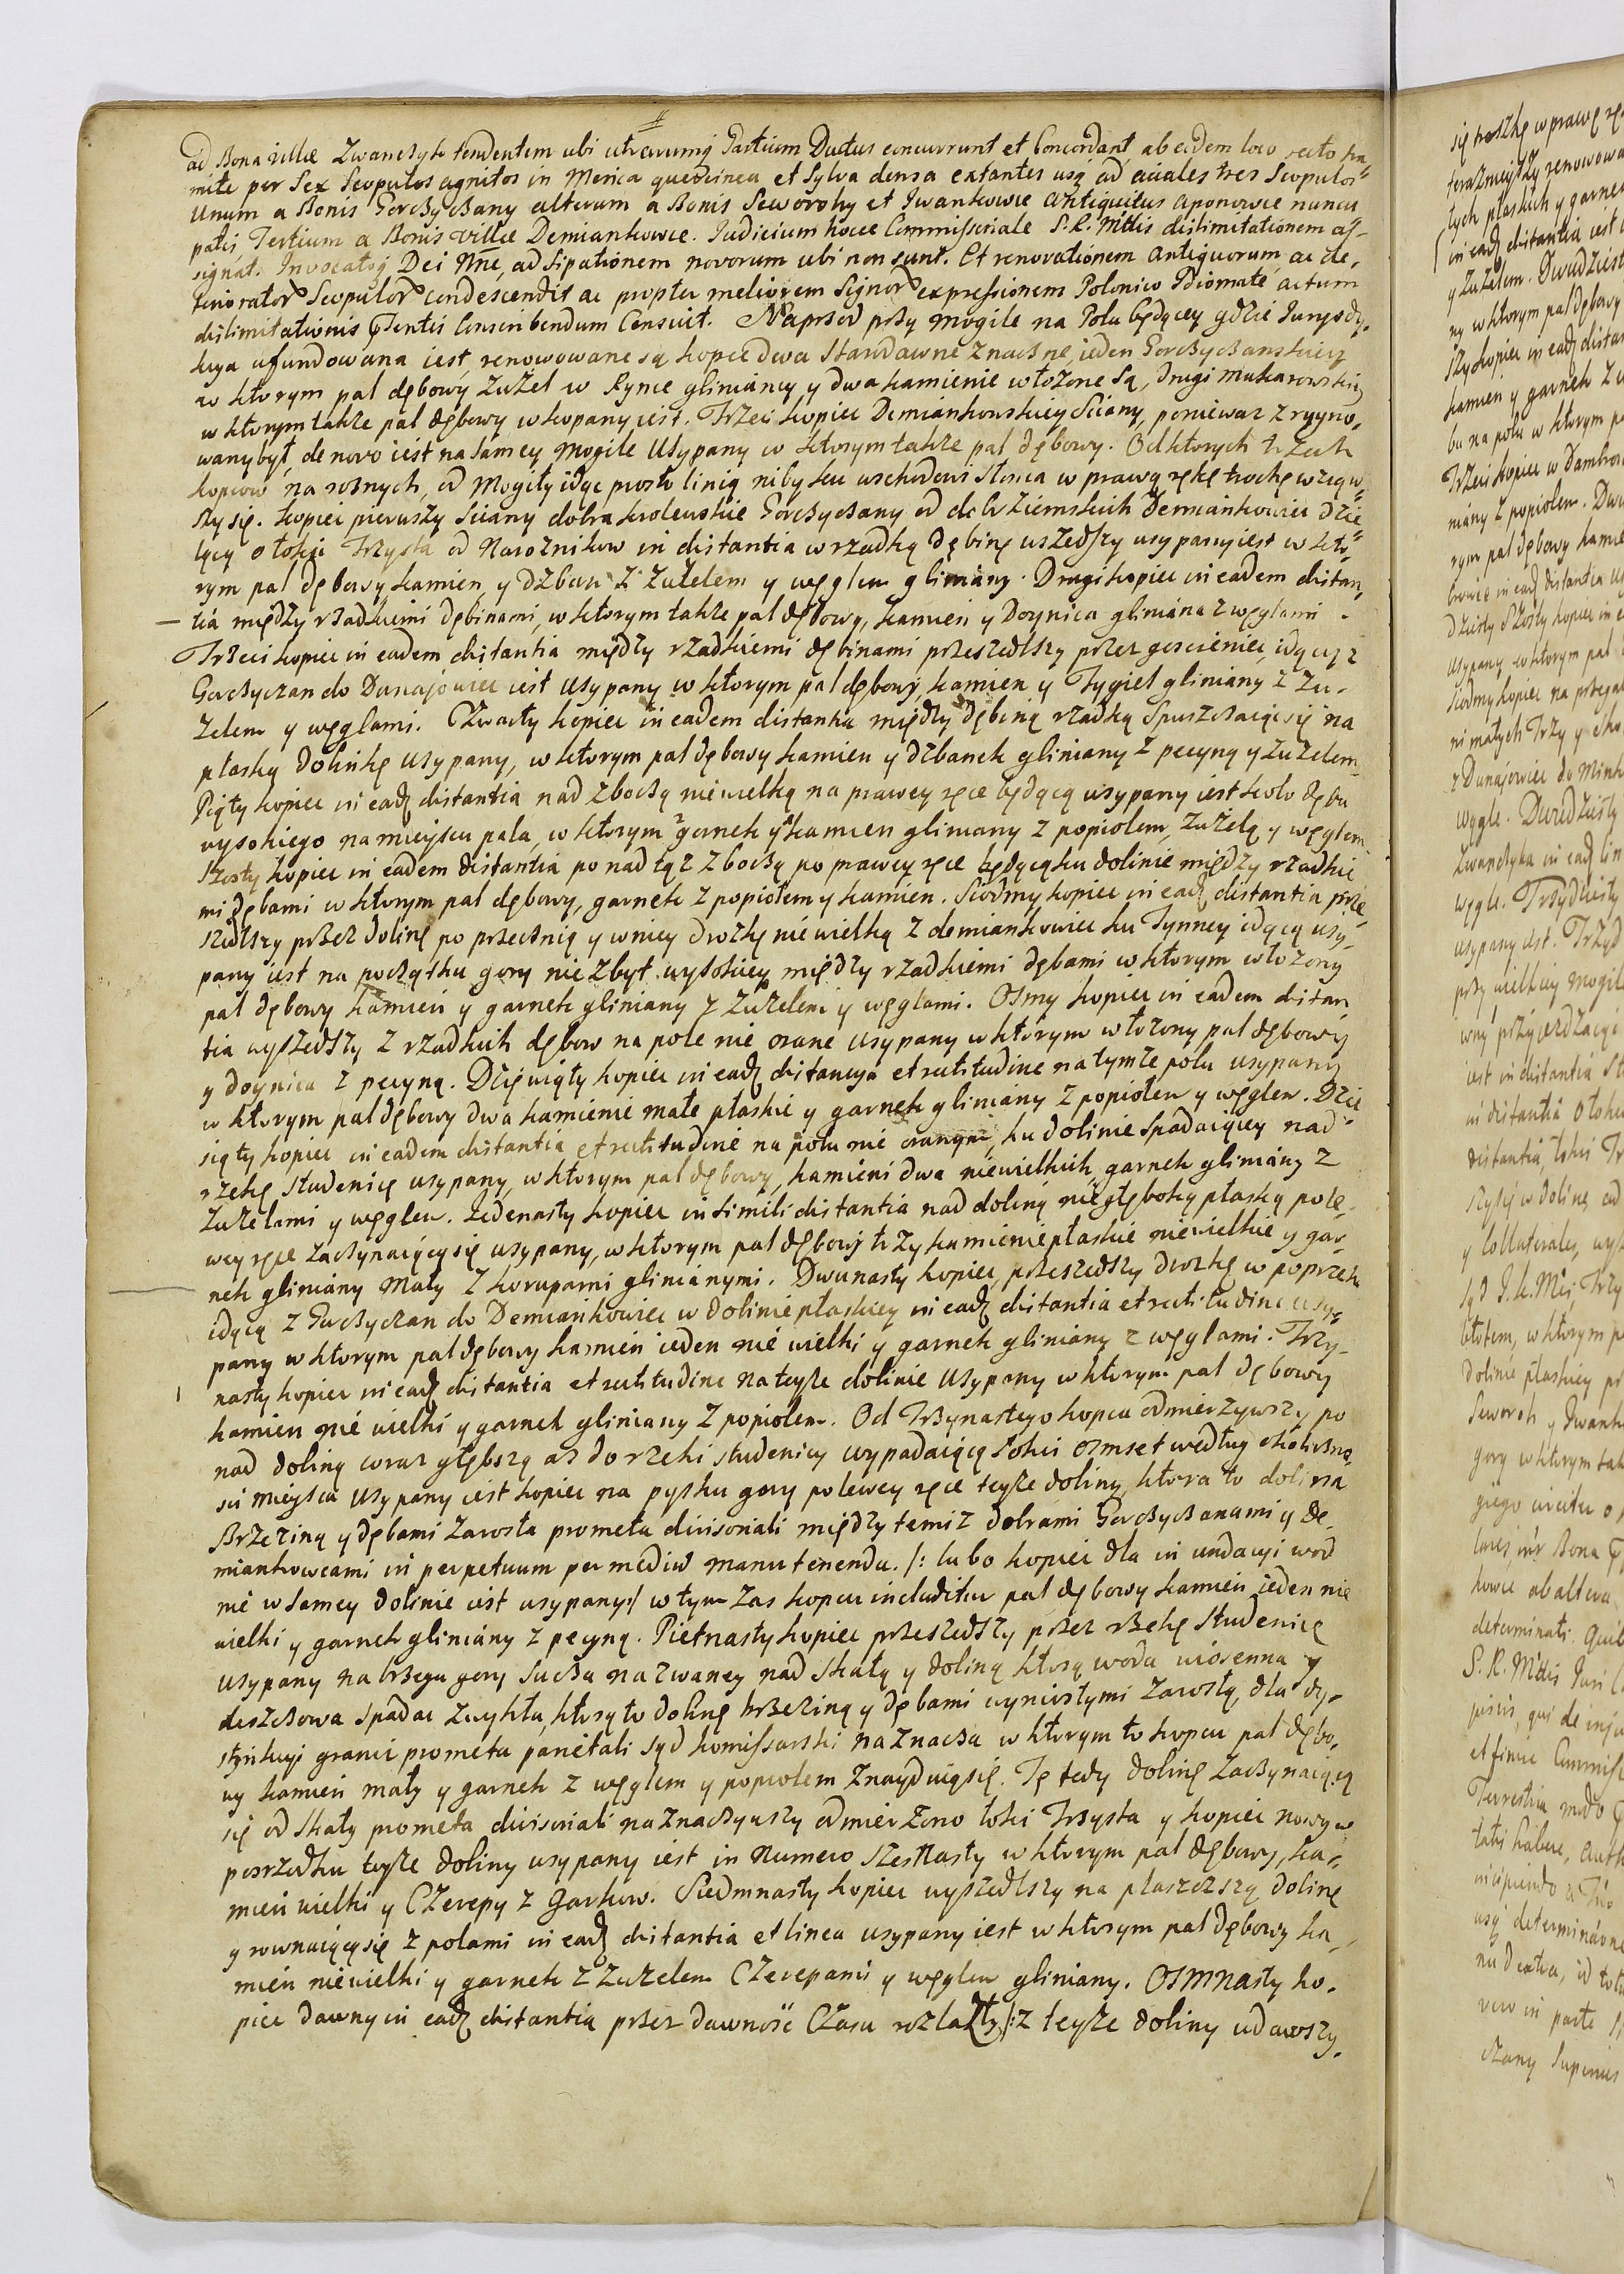 ad Bona villæ Zwanczyk tendentem ubi utrarumq Partium Ductus concurrunt et Concordant, ab eodem loco recto tra„
mite per Sex Scopulos agnitos in Merica quercinea et Sylva densa extantes usq ad aciales tres Scopulos
Unum a Bonis Gorczyczany alterum a Bonis Seworohy et Iwankowce antiquitus Aponowce nuncu
patis, Tertium a Bonis villæ Demiankowce. Judicium hocce Commissoriale S. R. Mttis dislimitationem as-
signat. Invocatoq Dei Nne, ad sipationem novorum ubi non sunt. Et renovationem antiquorum, ac de„
teriorator Scopulor condescendit ac propter meliorem Signor expressionem Polonico Idiomate actum
dislimitationis Pntis Conscribendum Censuit. Naprzod przy mogile na Polu będącey gdzie Jurysdy„
kcya ufundowana iest, renowowane są kopce dwa Starodawne znaczne, ieden Gorczyczanskiey
w ktorym pal dębowy Zużel w Rynce glinianey y dwa kamienie włożone Są, drugi makarowskiey
w ktorym takze pal dębowy wkopany iest. Trzeci kopiec Demiankowskiey Sciany, poniewaz zruyno„
wany był, de novo iest na Samey mogile Usypany w ktorym takze pal dębowy. Od ktorych trzech
kopcow naroznych, od Mogiły idąc prosto linią niby ku wschodowi Słonca w prawą rękę trochę wziąw„
szy się. kopiec pierwszy Sciany dobra krolewskie Gorczyczany od dobr ziemskich Demiankowiec dzie„
lący o łokci Trzysta od Naroznikow in distantia w rzadką dębinę uszedszy usypany iest w kto„
rym pal dębowy kamien, y dzban z zużelem y węglem gliniany. Drugi kopiec in eadem distan„
tia między rzadkiemi dębinami, w ktorym takze pal dębowy, kamien y Doynica gliniana z węglami.
Trzeci kopiec in eadem distantia między rzadkiemi dębinami przeszedszy przez gosciniec, idący z
Gorczyczan do Dunajowiec iest Usypany w ktorym pal dębowy, kamien y Tygiel gliniany z zu-
żelem y węglami. Czwarty kopiec in eadem distantia między dębiną rzadką Spuszczaiąc się na
płaską dolinkę usypany, w ktorym pal dębowy kamien y dzbanek gliniany z pecyną y zużelem
Piąty kopiec in eadꝫ distantia nad zboczą niewielką na prawey ręce będącą usypany iest koło dębu
wysokiego na mieyscu pala, w ktorym garnek y kamien gliniany z popiołem, zużelą y węglem
Szosty kopiec in eadem distantia po nad tąz zboczą po prawey ręce będącą ku dolinie między rzadkie
mi dębami w ktorym pal dębowy, garnek z popiołem y kamien. Siodmy kopiec in eadꝫ distantia prze
szedszy przez dolinę po przecznią y w niey drozkę niewielką z demiankowiec ku Tynney idącą usy„
pany iest na początku gory nie zbyt wysokiey między rzadkiemi dębami w ktorym włozony
pal dębowy kamien y garnek gliniany z zużelem y węglami. Osmy kopiec in eadem distan„
tia wyszedszy z rzadkich dębow na pole nie orane usypany w ktorym włozony pal dębowy
y doynica z pecyną. Dziewiąty kopiec in eadꝫ distancya et rectitudine na tymze polu usypany
w ktorym pal dębowy dwa kamienie małe płaskie y garnek gliniany z popiołem y węglem. Dzie
siąty kopiec in eadem distantia et rectitudine na polu nie oranym, ku dolinie Spadaiącey nad
rzekę Studenicę usypany, w ktorym pal dębowy, kamieni dwa niewielkich, garnek gliniany z
Zużelami y węglem. Jedenasty kopiec in simili distantia nad doliną niegłęboką płaską po le„
wey ręce zaczynaiącą się usypany, w ktorym pal dębowy trzy kamienie płaskie niewielkie y gar„
nek gliniany mały z korupami glinianymi. Dwunasty kopiec, przeszedszy drozkę w poprzek
idącą z Gorczyczan do Demiankowiec w dolinie płaskiey in eadꝫ distantia et rectitudine usy„
pany w ktorym pal dębowy kamien ieden nie wielki y garnek gliniany z węglami. Trzy-
nasty kopiec in eadꝫ distantia et rectitudine na teyze dolinie Usypany w ktorym pal dębowy
kamien nie wielki y garnek gliniany z popiołem. Od Trzynastego kopca odmierzywszy po
nad doliną coraz głębszą az do rzeki studenicy wypadaiącą łokci osmset według okoliczno„
sci mieysca Usypany iest kopiec na pysku gory po lewey ręce teyze doliny, ktora to dolina
Brzeziną y dębami zarosła prometa divisoriali między temiz dobrami Gorczyczanami y De„
miankowcami in perpetuum per mediū manutenenda. /: lubo kopiec dla inundacyi wod
nie w Samey dolinie iest usypany:/ w tym zas kopcu includitur pal dębowy kamien ieden nie
wielki y garnek gliniany z pecyną. Pietnasty kopiec przeszedszy przez rzekę Studenicę
usypany na brzegu gory Sucza nazwaney nad skałą y doliną ktorą woda wiosenna y
deszczowa Spadac zwykła, ktorą to dolinę brzeziną y dębami wyniosłymi zarosłą, dla dy„
stynkcyi granic prometa parietali sąd komissarski naznacza w ktorym to kopcu pal dębo„
wy kamien mały y garnek z węglem y popiołem znayduią się. Tę tedy dolinę zaczynaiącą
się od Skały prometa divisoriali naznaczywszy odmierzono łokci Trzysta y kopiec nowy w
posrzodku teyze doliny usypany iest in Numero szesnasty w ktorym pal dębowy, ka„
mien wielki y Czerepy z Garkow. Siedmnasty kopiec wyszedszy na płaszczszą dolinę
y rownaiącą się z polami in eadꝫ distantia et linea usypany iest w ktorym pal dębowy ka„
mien niewielki y garnek z Zużelem Czerepami y węglem gliniany. Osmnasty ko„
piec dawny in eadꝫ distantia przez dawność Czasu rozlazły /: z teyze doliny udawszy„
się troszkę w prawą rę
teraznieyszy renowowa
tych płaskich y garne
in eadꝫ distantia iest
y Zużelem. Dwudziest
ny w ktorym pal dębowy
szy kopiec in eadꝫ distan
kamien y garnek z
bu na polu w ktorym p
Trzeci kopiec w Dambro
niany z popiołem. Dwu
rym pal dębowy kamie
browie in eadꝫ distantia u
dziesty Szosty kopiec in e
usypany w ktorym pal
Siodmy kopiec na przegar
ni małych Trzy y sko
z Dunajowiec do Mink
Węgle. Dwudziesty
Zwanczyka in eadꝫ lin
węgle. Trzydziesty
usypany iest. Trzyd
przy wielkiey mogile
iest in distantia St
in distantia o łokc
distantia, łokci Tr
szy się w dolinę ead
y Collaterales, usy
błotem, w ktorym p
dolinie płaskiey pr
Seworoh y Iwank
gory w ktorym tak
giego circiter o
kowce ab altera
determinati. Quib
S. R. Mttis Juri
piscis, qui de inju
et finie Commiss
Terrestria modo
tatis habere, auth
incipiendo a Trio
usq determinavne
nu dextra, id totu
vero in parte
czany Superius